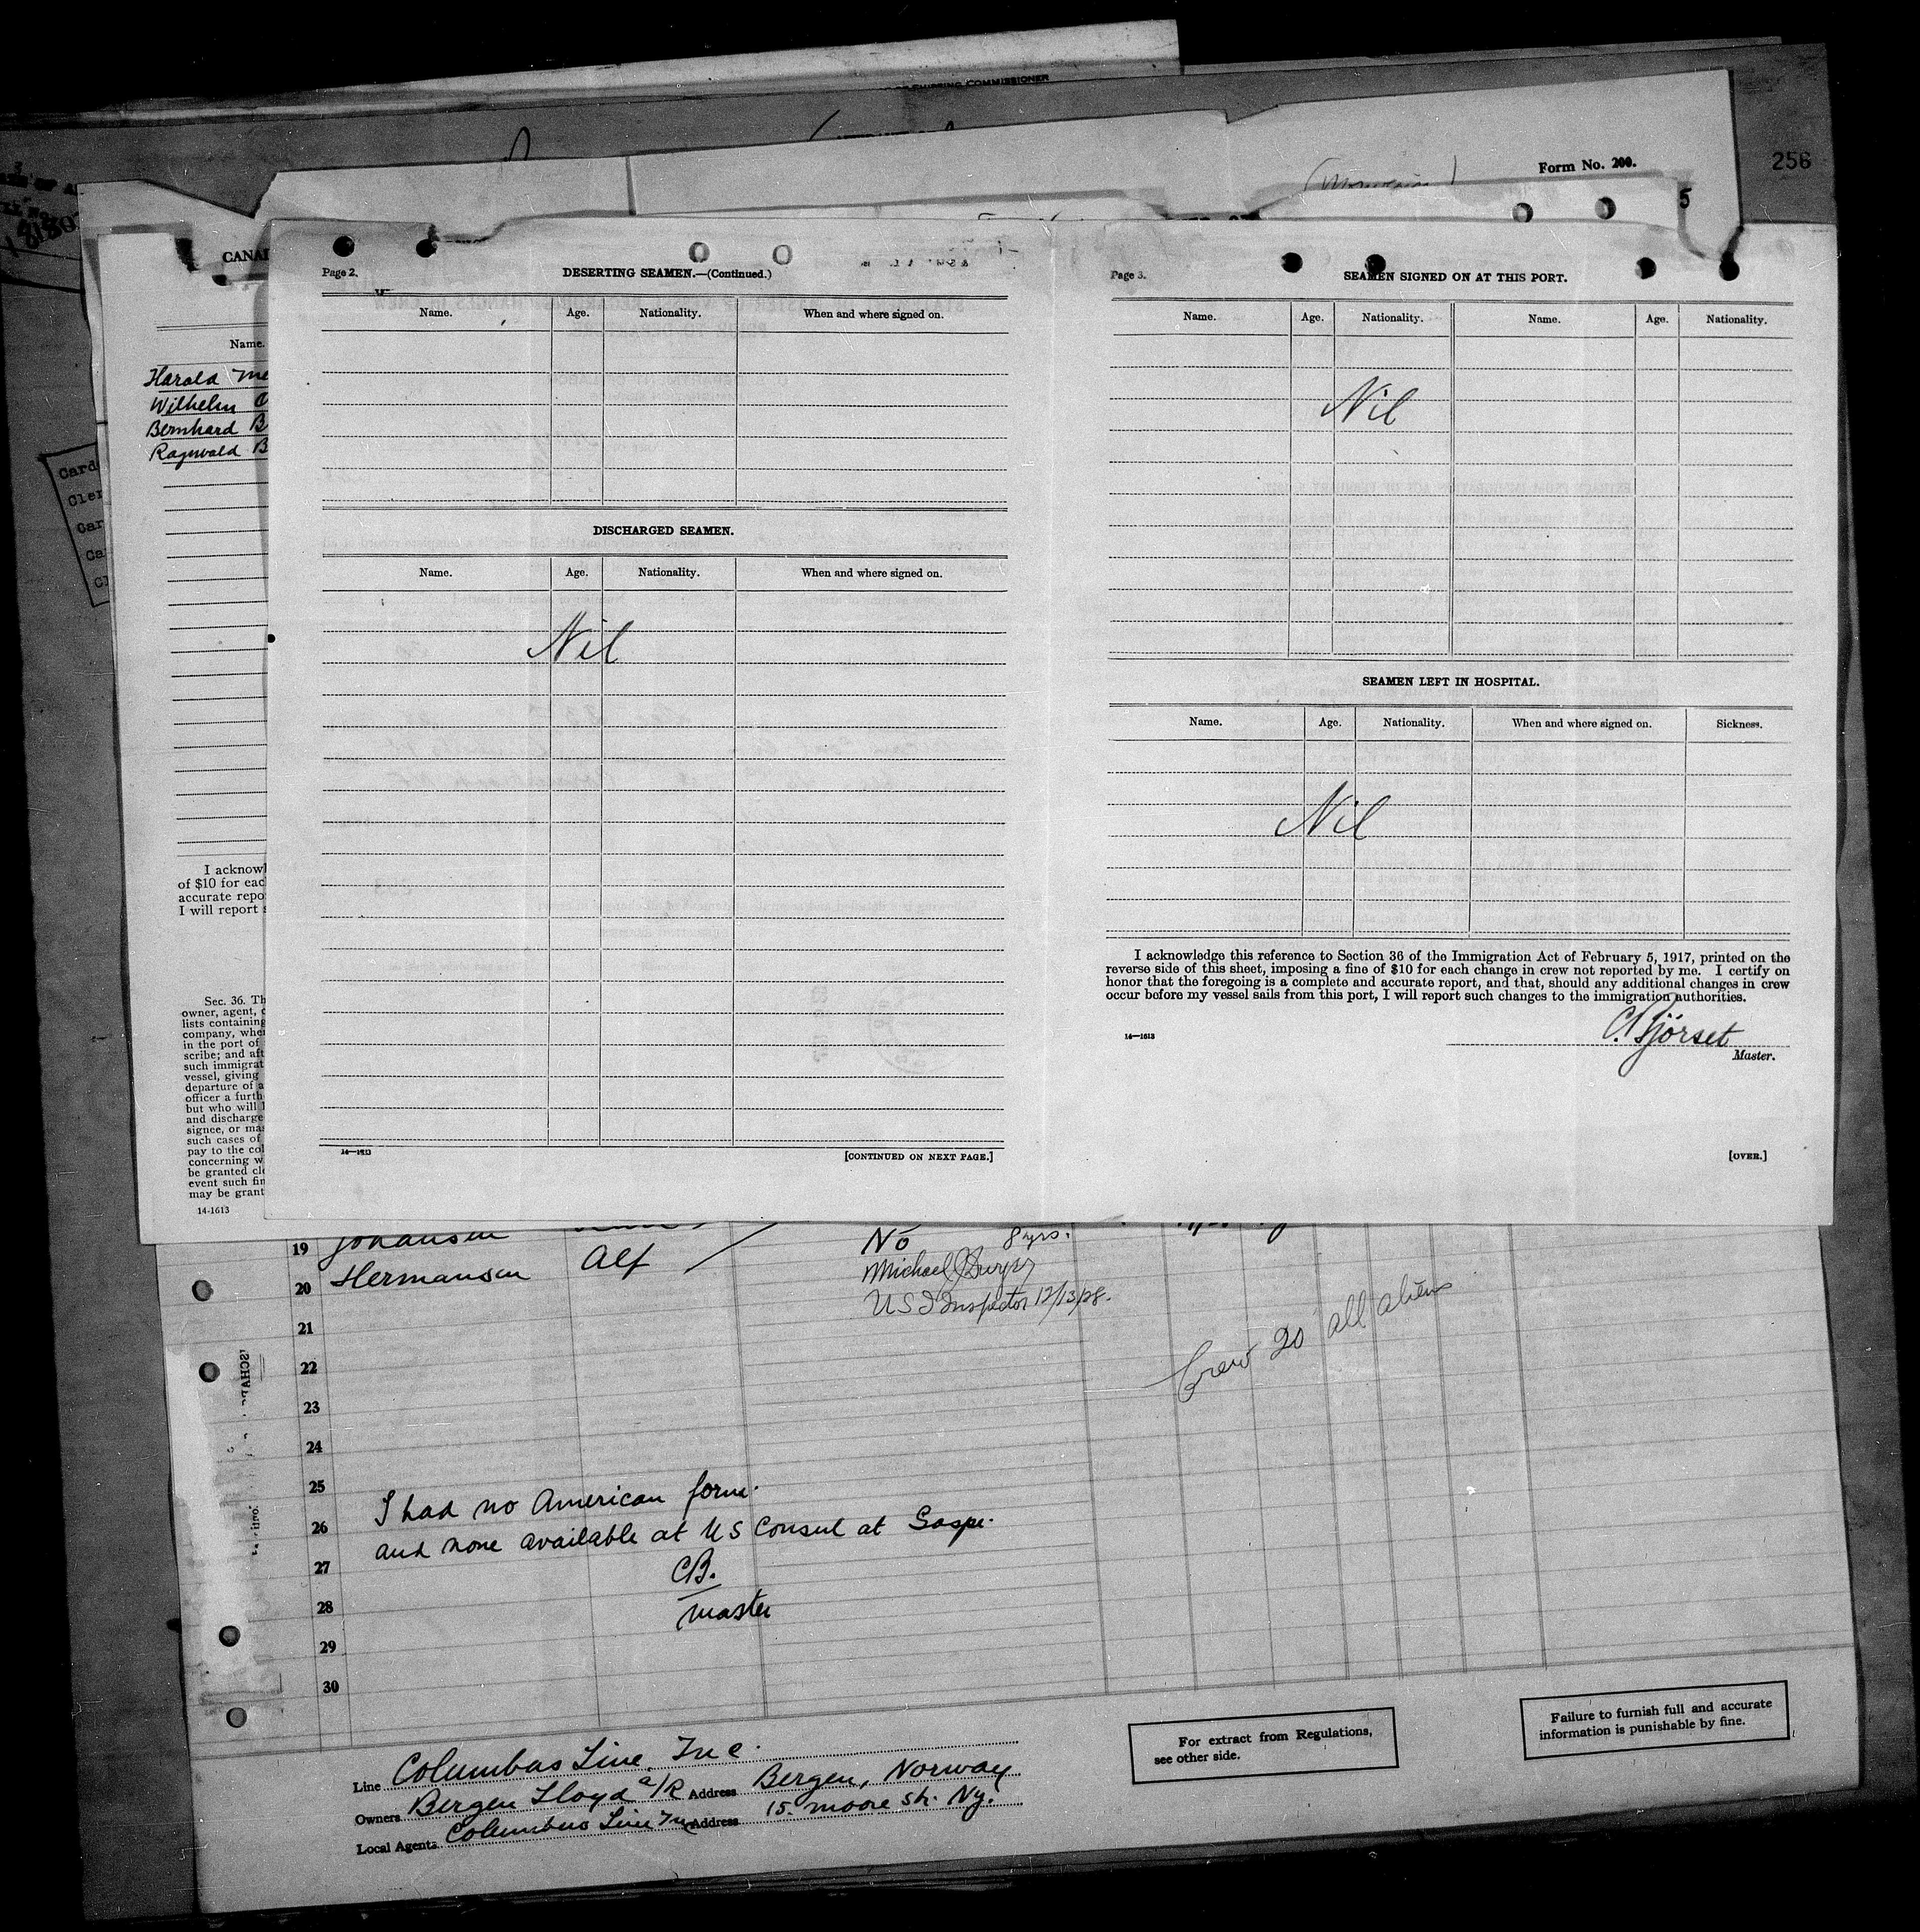 OF SHIPPING COMMISSIONER
Form No. 200.
256
5
CANA
Name.
Harold Me
Wilhelm O
Bernhard B
Ragnvald B
Card
Cler
Car
Ca
Cl
I acknowl
of $10 for eac
accurate repo
I will report s
Sec. 36. Th
owner, agent, o
lists containing
company, whe
in the port of
scribe; and aft
such immigrat
vessel, giving
departure of a
officer a furth
but who will l
and discharge
signee, or mas
such cases of
pay to the col
concerning w
be granted cle
event such fin
may be grant
14-1613
Page 2.
DESERTING SEAMEN.—(Continued.)
Name. Age. Nationality. When and where signed on.
DISCHARGED SEAMEN.
Name. Age. Nationality. When and where signed on.
Nil
14—1613
[CONTINUED ON NEXT PAGE.]
Page 3.
SEAMEN SIGNED ON AT THIS PORT.
Name. Age. Nationality. Name. Age. Nationality.
Nil
SEAMEN LEFT IN HOSPITAL.
Name. Age. Nationality. When and where signed on. Sickness.
Nil
I acknowledge this reference to Section 36 of the Immigration Act of February 5, 1917, printed on the
reverse side of this sheet, imposing a fine of $10 for each change in crew not reported by me. I certify on
honor that the foregoing is a complete and accurate report, and that, should any additional changes in crew
occur before my vessel sails from this port, I will report such changes to the immigration authorities.
14—1613
Master.
[OVER.]
19 Johansen No 8 yrs.
20 Hermansen Alf Michael
U S I Inspector 12/13/28.
21
22
Crew 20 all aliens
23
24
25
I had no American form.
26
and none available at US Consul at Gaspe.
27
CB.
28
master
29
30
Line Columbus Line, Inc.
Owners Bergen Lloyd a/R Address Bergen, Norway
Local Agents Columbus Line Inc Address 15. Moore str. Ny.
For extract from Regulations,
see other side.
Failure to furnish full and accurate
information is punishable by fine.